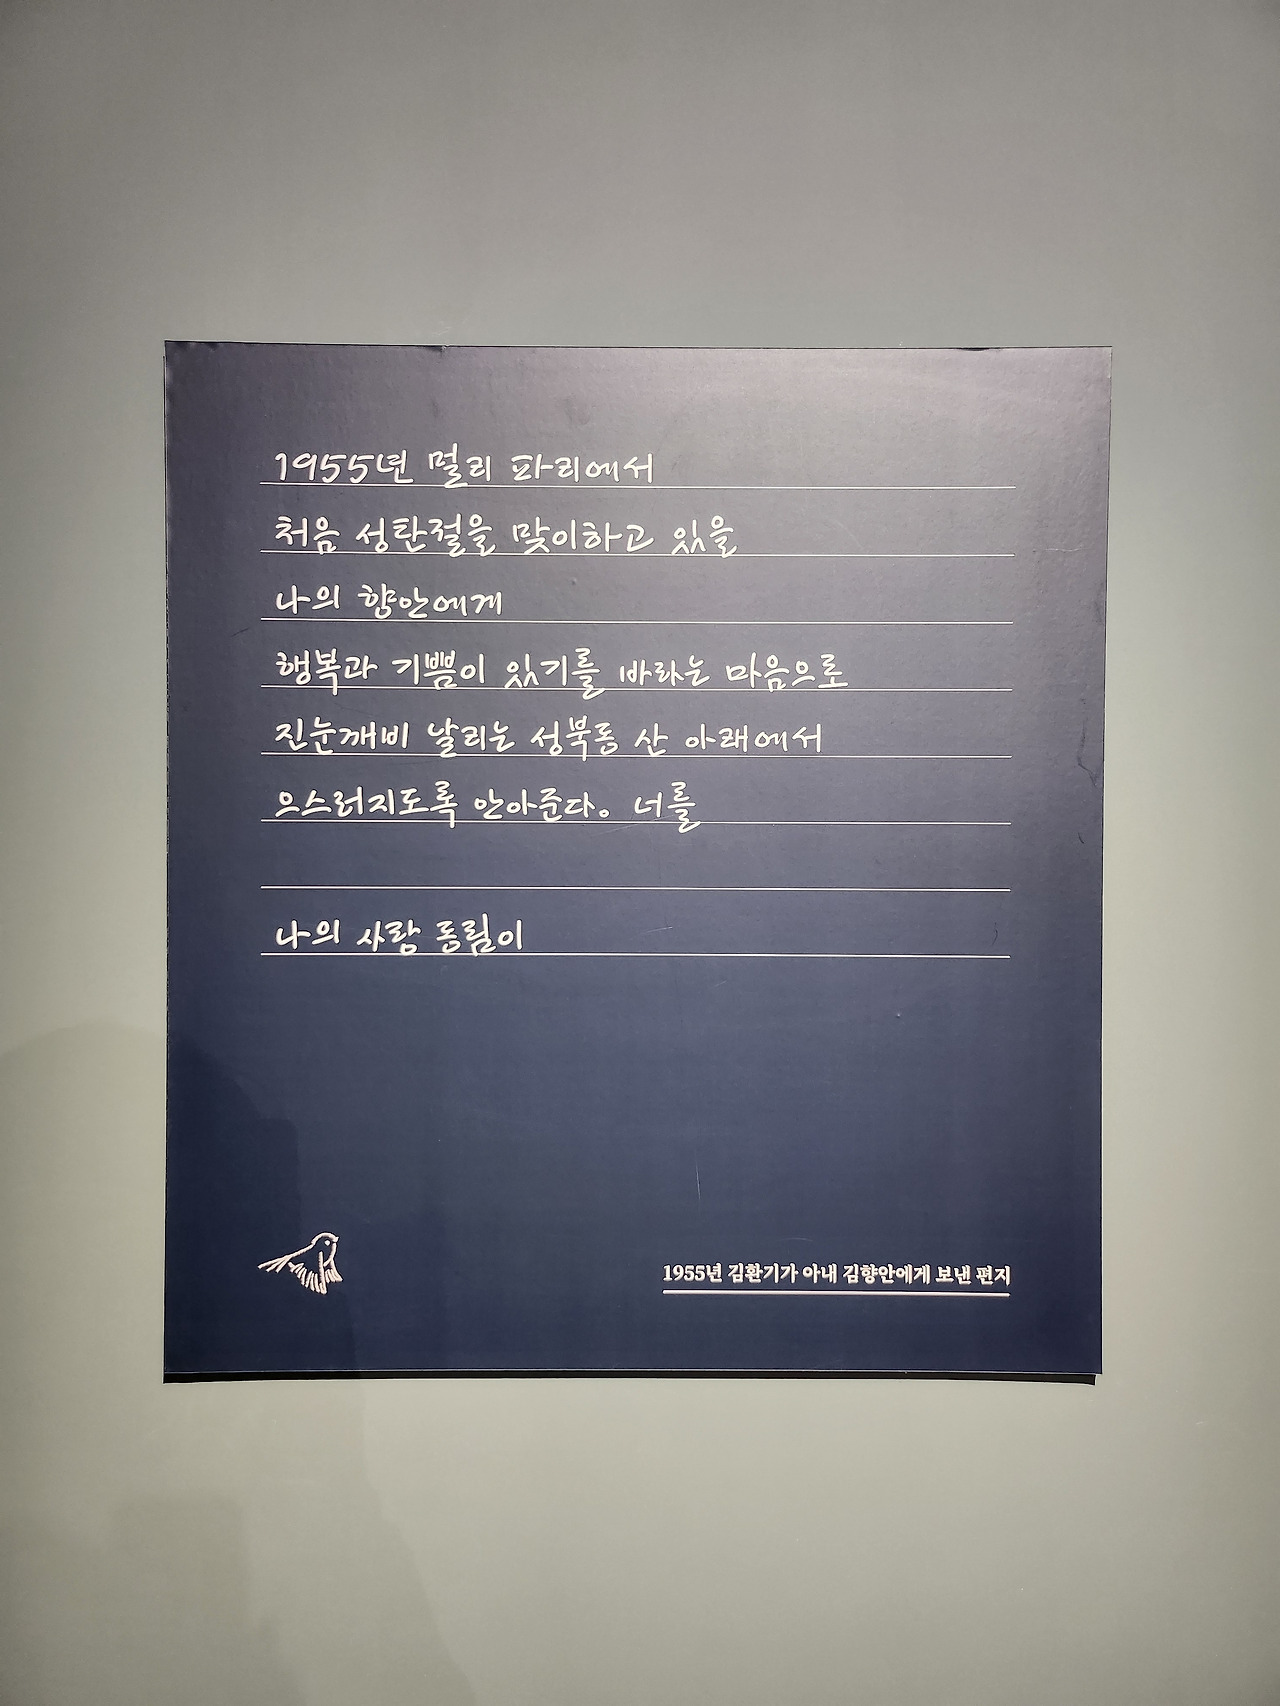 1955년 멀리 파리에서
처음 성탄절을 맞이하고 있을
나의 향안에게
행복과 기쁨이 있기를 바라는 마음으로
진눈깨비 날리는 성북동 산 아래에서
으스러지도록 안아준다. 너를
나의 사랑 동림이
1955년 김환기가 아내 김향안에게 보낸 편지